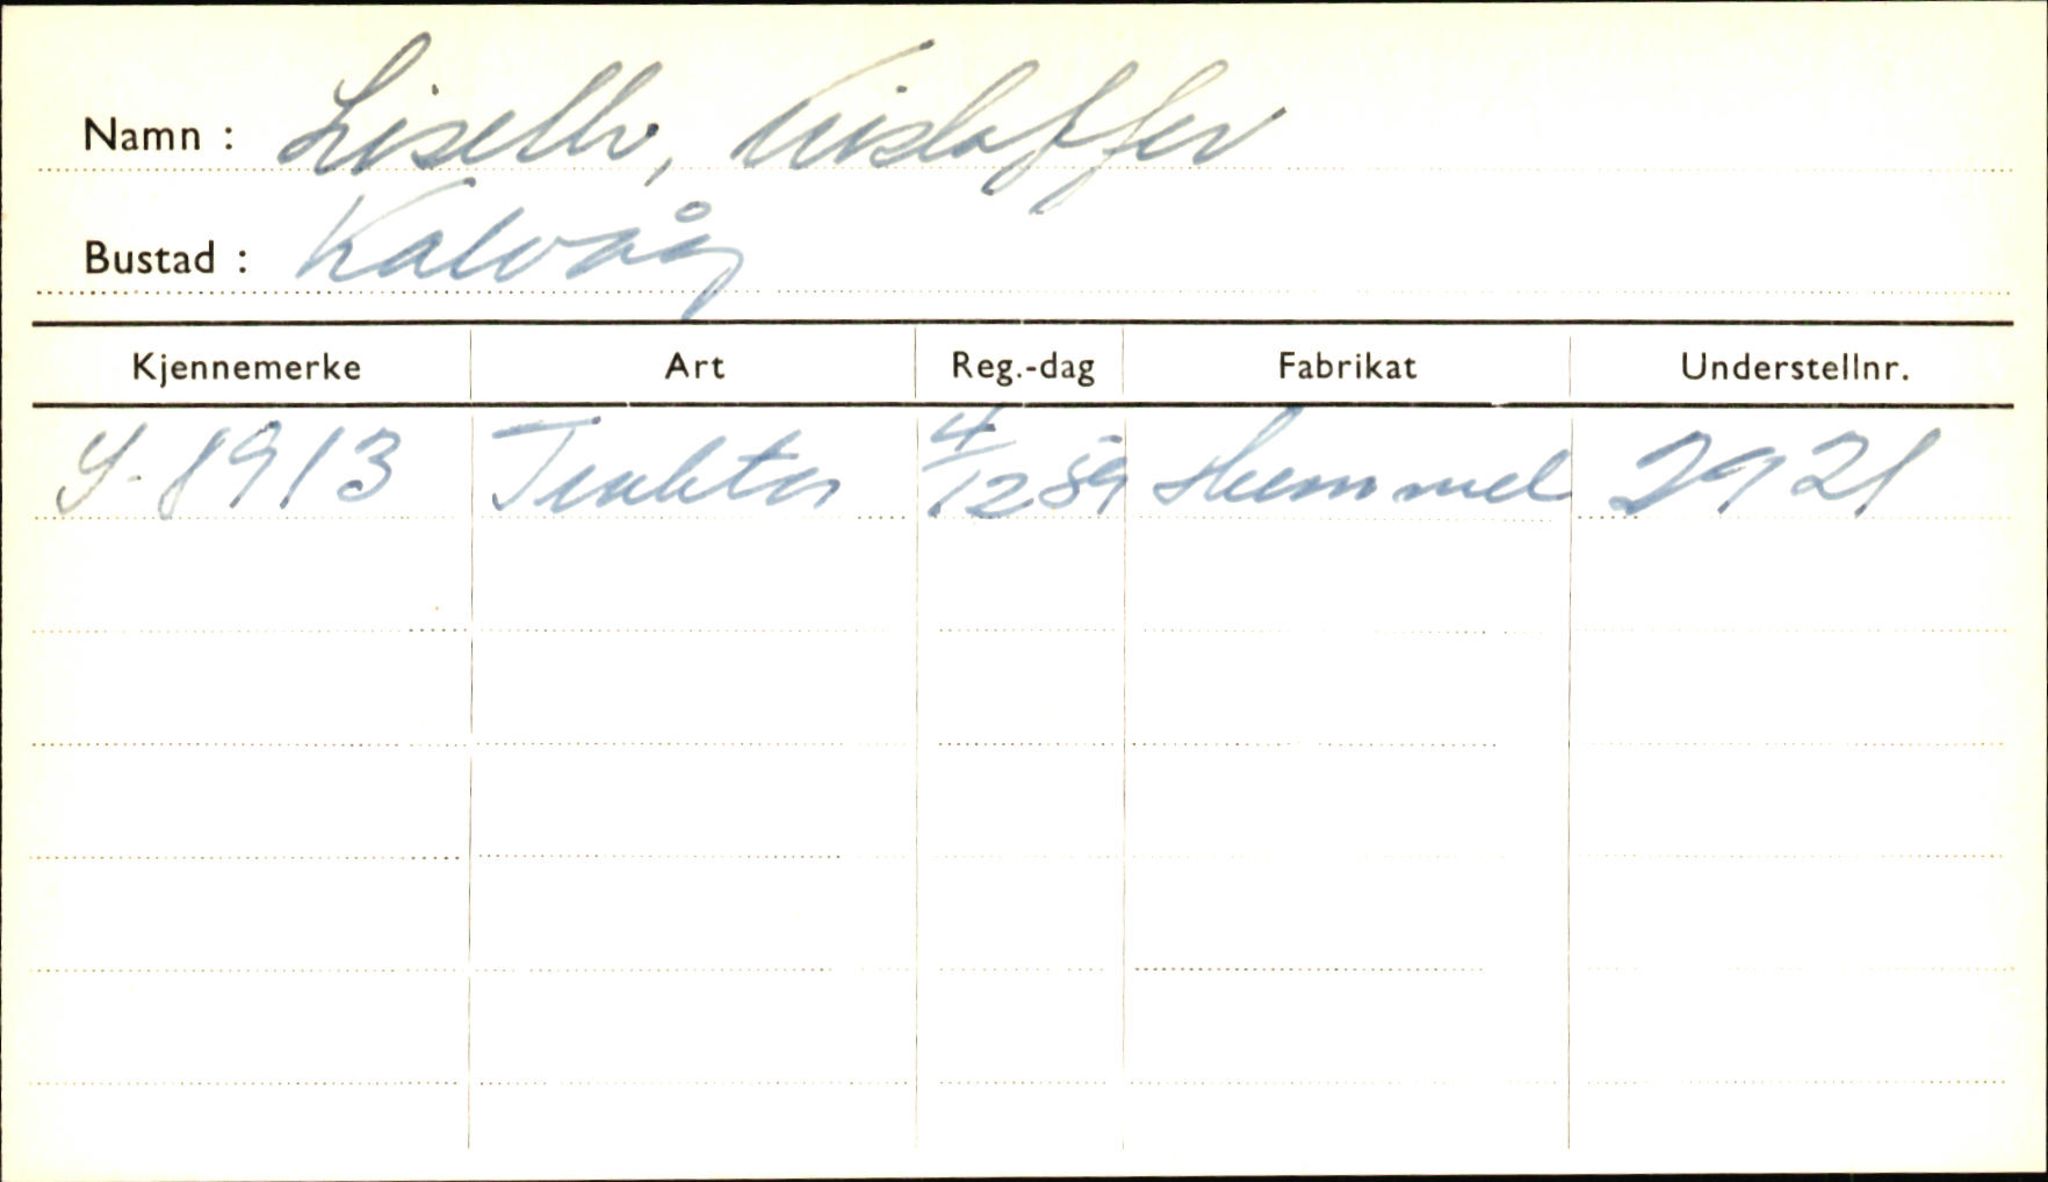 Namn : Liseth, Kristoffer
Bustad : Kalvåg
Kjennemerke Art Reg.-dag Fabrikat Understellnr.
S-8913 Traktor 4/12 59 Hummel 2921